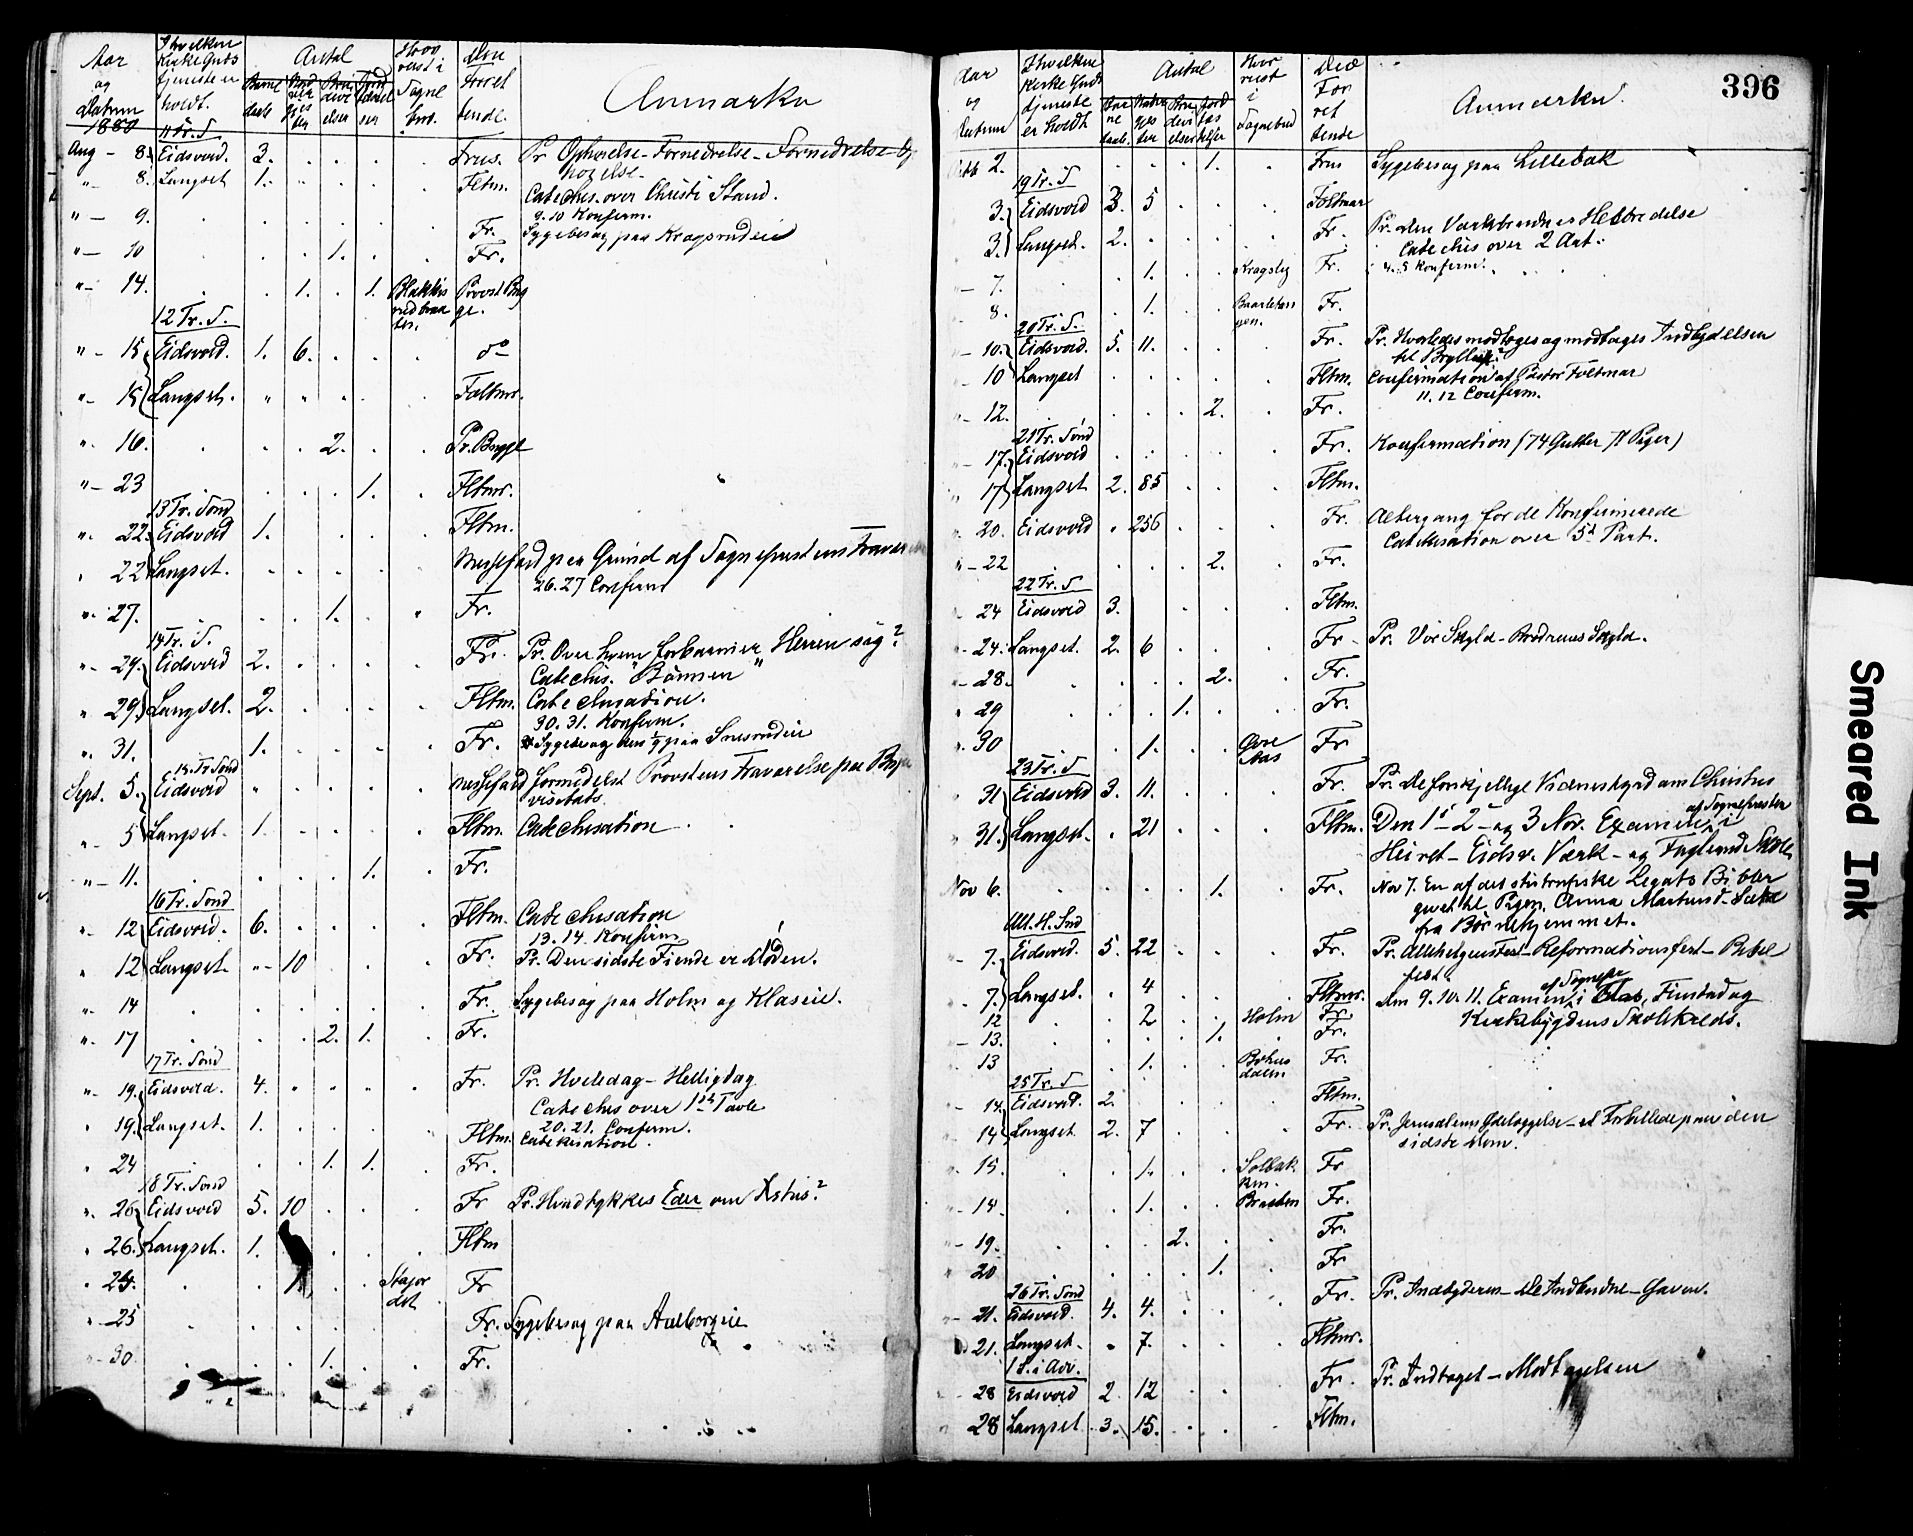 Aar og Datum 1880 Ihvilken Kirke Guds tjeneste er holdt. Antal Barne daab Bru de vi elser Jord fæstel ser Hvor reist i Sogne bud. Den Forret tende. Anmærkn
11 Tr. S
Aug - 8. Eidsvold. 3. Frus. Pr Ophøielse - Fornedrelse - Fornedrelse Op
høielse -
" - 8. Langset 1. Fltm. Catechis. over Christi Stand.
9. 10 Konfirm.
" - 9. Fr. Sygebesøg paa Kragerudeie
" - 10 1. Fr.
" - 14. 1. 1. Provst Bug
ge.
12 Tr. S.
" - 15 Eidsvold. 1. 6. do
" - 15 Langset. Foltmr.
" 16. 2. Pr. Bugge
" - 23 1. Fltmr.
13 Tr. Sønd
" 22. Eidsvold 1. Fltm.
" 22 Langset. Messefald paa Grund af Sogneprestens Fravær
26. 27 Confirm
" 27. 1. Fr.
14 Tr. S.
" - 29. Eidsvold 2. Fr. Pr. Over hvem forbarmer Herren sig?
Catechis. "Bønnen"
" 29. Langset. 2. Fltm. Catechisation.
30. 31. Konfirm.
" 31. 1. Fr. Sygebesøg den paa
15. Tr Sønd
Sept. 5. Eidsvold Messefald formedelst Provstens Fraværelse paa
visitats.
" - 5 Langset. 1. Fltm. Catechisation
" - 11. 1. Fr.
16 Tr. Sønd
" 12 Eidsvold. 6. Fltm. Catechisation
13. 14. Konfirm
" 12 Langset 10 Fr. Pr. Den sidste Fiende er Døden.
" 14 Fr. Sygebesøg paa Holm og Klaseie.
" 17 2. 1. Fr.
17 Tr. Sønd
" 19. Eidsvold. 4. Fr. Pr. Hviledag - Helligdag
Catechis over 1ste Tavle
20. 21. Confirm.
" 19. Langset. 1. Fltm. Catekisation.
" 24 1. 1. Fr.
18 Tr. Sønd
" 26 Eidsvold 5. 10 Fr Pr. Hvad tykkes Eder om Kristus?
" 26. Langset. 1. Fltm
" 24. Fr
" 25 Fr. Sygebesøg paa
" 30 1. Fr.
396
Aar og Datum Ihvilken Kirke Guds tjeneste er holdt Antal Bar ne daab. Natver gjes ter Bru devi elser Jord fæs telser Hvor reist i Sognebud Den For ret tende Anmærkn.
2. 1. Frus Sygebesøg paa Lillebak
19 Tr. S
3. Eidsvold 3. 5 Foltmar
3. Langset. 2. Fr. Pr. den Værkbrudnes Helbredelse
Catechis over 2 Art.
4. 5 Konfirm.
7. 1. Fr.
8. 1. Fr.
20 Tr. S.
- 10. Eidsvold. 5. 11. Fr. Pr. Hvorledes modtoges og modtages Indbydelsen
til Bryllup?
- 10 Langset Fltm. Confirmation af Pastor Foltmar
11. 12 Confirm.
- 12. 2. Fr.
21 Tr. Sønd
- 17. Eidsvold Fr. Konfirmation (74 Gutter 71 Piger)
17 Langset 2. 85 Fltm.
20. Eidsvold 256 Fr. Altergang for de Konfirmerede
Catekisation over 5te Part.
" - 22 2. Fr.
22 Tr. S
24 Eidsvold 3. Fltm.
- 24. Langset. 2. 6 Fr - Pr. Vor Skyld - Brødrenes Skyld.
- 28. 2. Fr.
" 29 1. Fr.
" 30 1. Øvre
Aas Fr
23 Tr. S
31 Eidsvold 3. 11. Fr. Pr. De forskjellige Vidnesbyrd om Christus
31. Langset. 21 Fltm. Den 1ste - 2 - og 3 Nov. Examen af Sognepresten i
- Eidsv. Værk - og Skole
Nov 6. 1. Fr. Nov 7. En af det Legats Bibler
givet til Pigen Anna
fra Børnehjemmet.
All. H. Snd
- 7. Eidsvold. 5. 22 Fr. Pr. Allehelgensfest - Reformationsfest - Bibel
fest.
- 7. Langset. 4 Fltmr. Den 9. 10. 11. Examen af Sognepr i Finstad og
Kirkebygdens Skolekreds.
12 2 Holm Fr.
- 13. 1. Fr.
13 1. Fr.
25 Tr. S
- 14. Eidsvold. 2. Fltm.
14 Langset 2. 7 Fr. Pr. Jerusalems Ødelæggelse - et Forbillede paa den
sidste Dom.
" 15. 1. Solbak
ken. Fr
- 14. 1. Braaten Fr.
- 19. 2. Fr.
" 20 1. Fr
26 Tr. Sønd
- 21. Eidsvold. 4. 4. Fr. Pr. Indbyderen - De Indbudne - Gaven.
21. Langset - 7. Fltmr.
1 S. i Adv.
- 28 Eidsvold 2. 12 Fr. Pr. Indtoget - Modtagelsen
28 Langset 3. 15. Fltm.
Smeared Ink